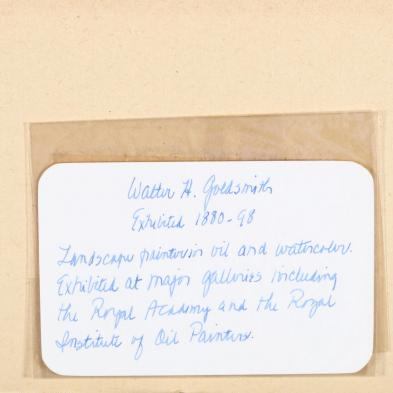 Walter H. Goldsmith
Exhibited 1880-98
Landscape painter in oil and watercolor.
Exhibited at major galleries including
the Royal Academy and the Royal
Institute of Oil Painters.